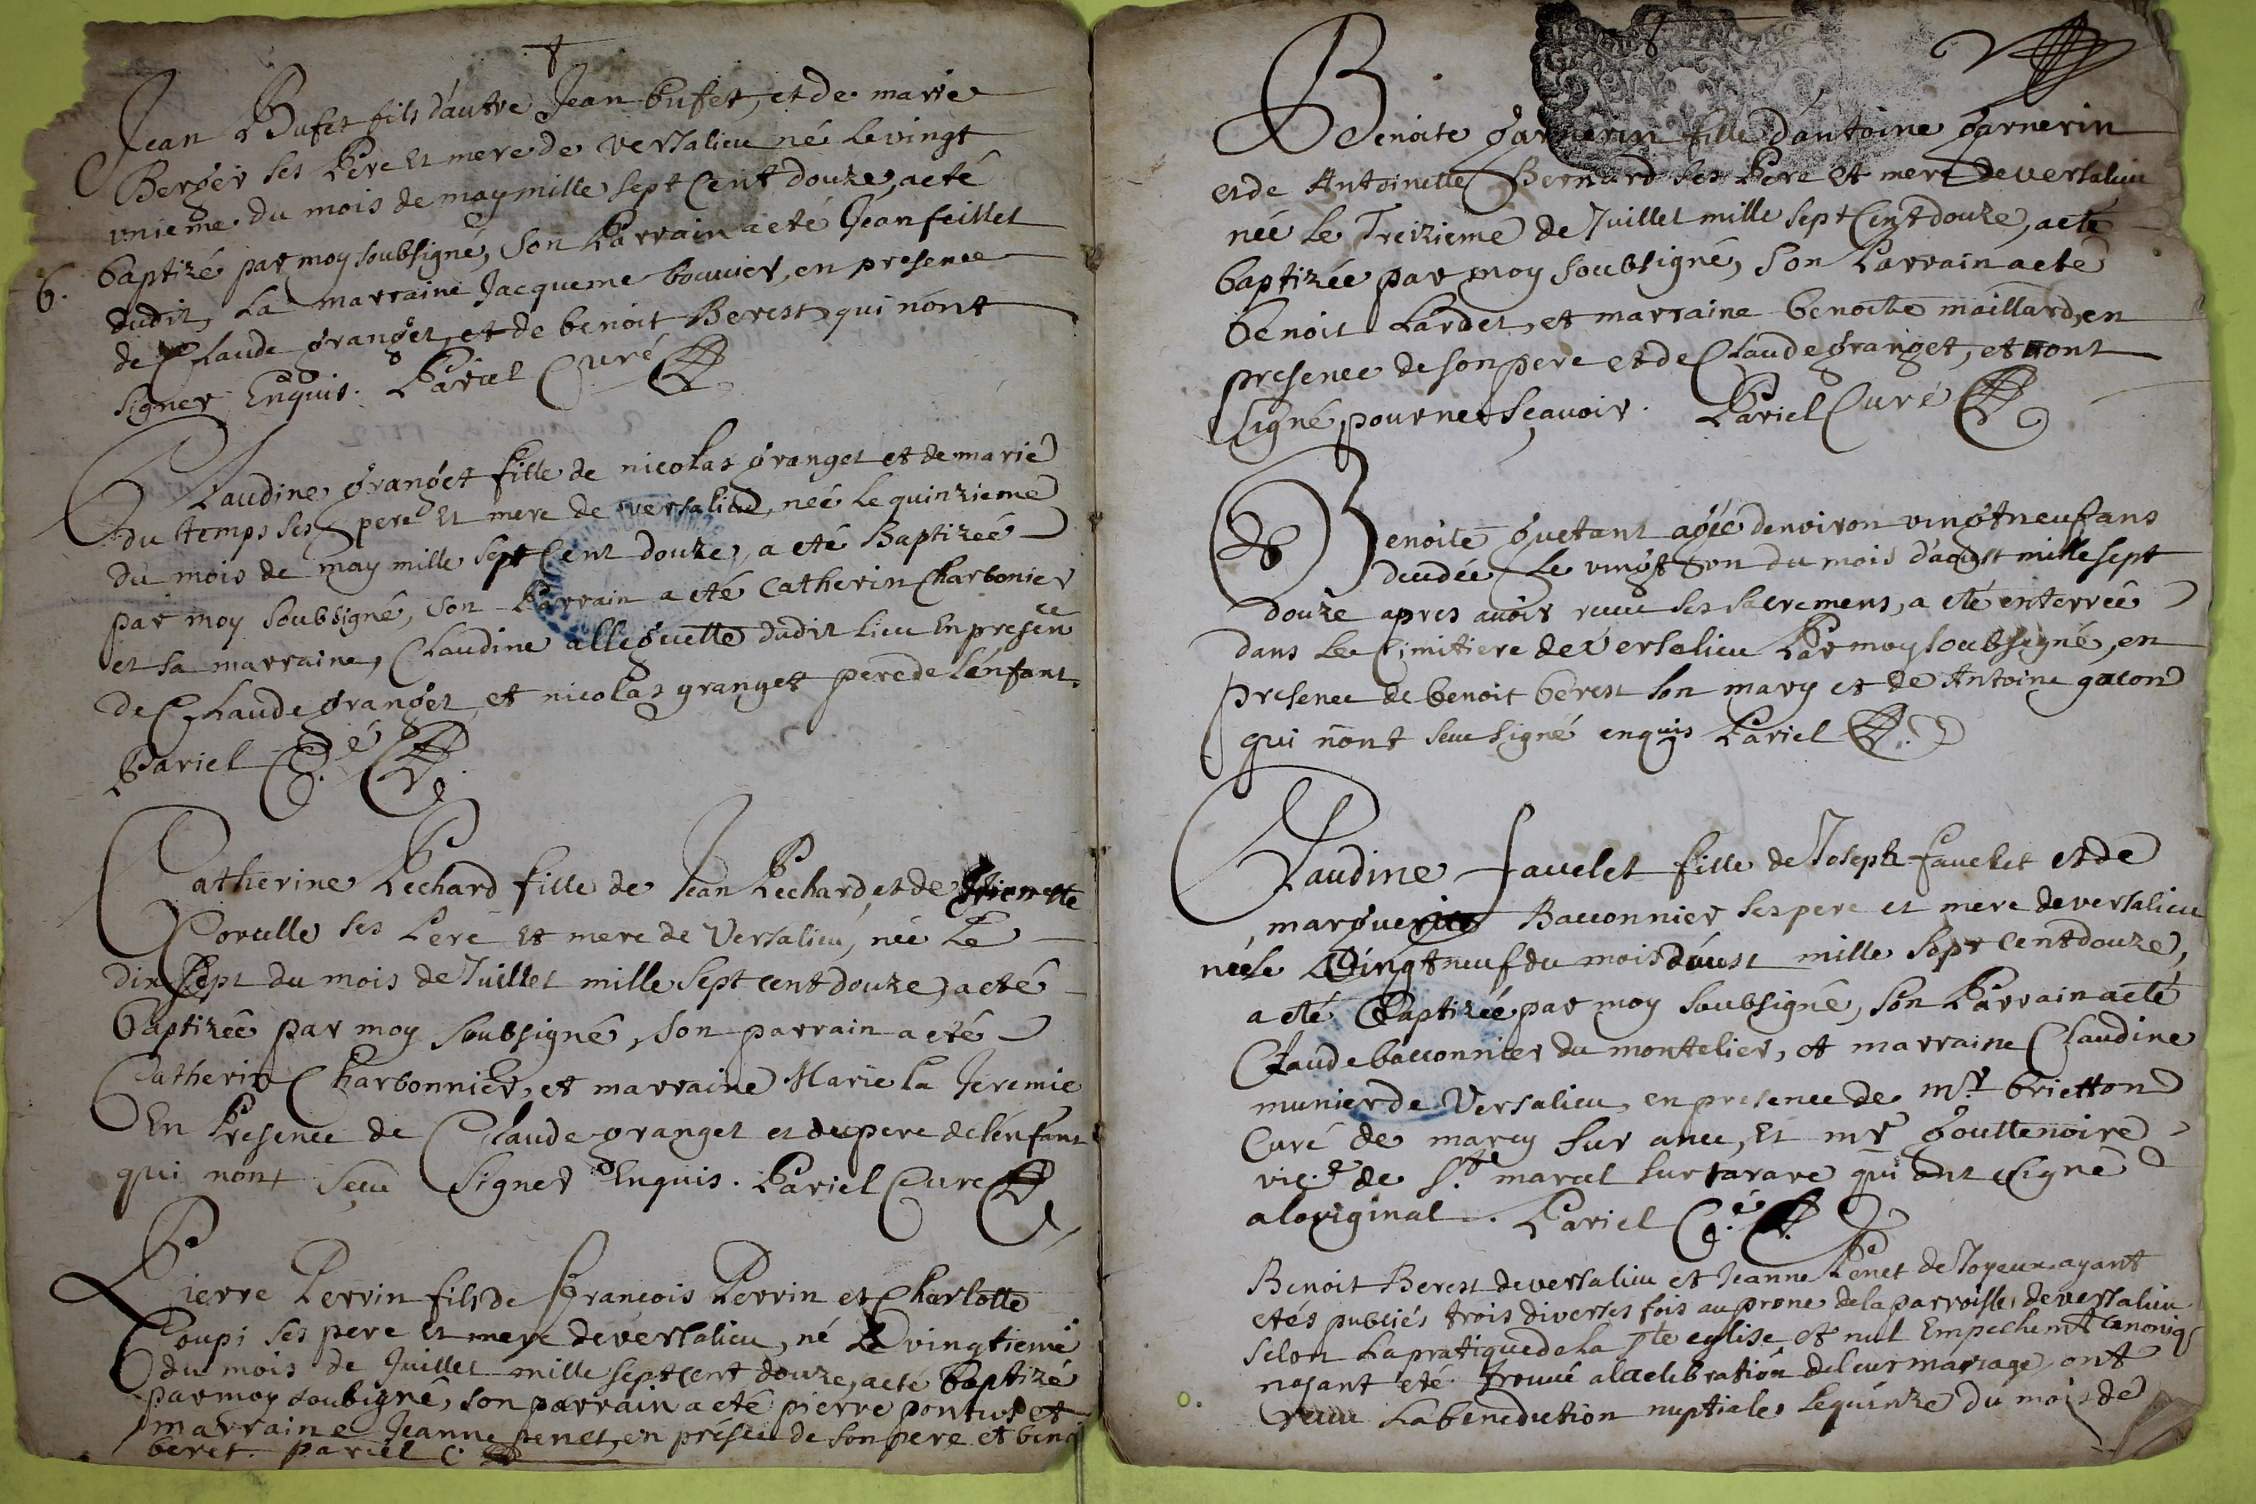 Jean Bufet fils d'autre Jean bufet, et de marie
Berger ses Pere Et mere de Versalieu né le vingt
unieme du mois de may mille sept Cent douze, a eté
baptizé par moy soubsigné, Son Parrain a eté Jean feillet
6.
dudit, La marraine Jacqueme bouvier, en presence
de Claude granget, et de benoit Berest qui n'ont
signer Enquis. Pariel Curé
Claudine granget fille de nicolas granget et de marie
du temps ses pere Et mere de versalieu, née le quinzieme
du mois de may mille sept Cent douze, a eté Baptizeé
par moy soubsigné, son Parrain a eté Catherin Charbonier
et sa marraine, Claudine alleguette dudit lieu En presen
ce
de Claude granget, et nicolas granget pere de l'enfant.
Pariel C.é
Catherine Pechard fille de Jean Pechard, et de
ses Pere Et mere de Versalieu, née Le
dix sept du mois de Juillet mille sept cent douze, a eté
baptizeé par moy soubsigné, son parrain a eté
Catherin Charbonnier, et marraine Marie la Jeremie
En Presence de Claude granget et du pere de l'enfant
qui nont sceu Signer Enquis. Pariel Curé
Pierre Perrin fils de François Perrin et Charlotte
Coupi ses pere Et mere de versalieu, né Le vingtieme
du mois de Juillet mille sept cent douze, a eté baptizé
par moy soubsigné, son parrain a eté pierre pontus et
marraine Jeanne penet, en présen de son pere et beno
beret. pariel C
Benoite garnerin fille d'antoine garnerin
et de Antoinette Bernard ses Pere Et mere de versalieu
née Le Treizieme de Juillet mille sept Cent douze, a eté
baptizée par moy soubsigné, Son Parrain a eté
benoit Lardet, et marraine benoite maillard, en
presence de son pere et de Claude granget, et nont
signé pour ne sçavoir. Pariel Curé
Benoite guetant agée denviron vingt neuf ans
decedée Le vingt un du mois d'aoust mille sept
douze apres avoir receu ses sacremens, a eté enterreé
dans Le Cimitiere de versalieu Par moy soubsigné, en
presence de benoit berest son mary et de Antoine gacon
qui n'ont sceu signé enquis Pariel
Claudine favelet fille de Joseph favelet et de
marguerite Bacconnier ses pere et mere de versalieu
née le Vingt neuf du mois d'aust mille sept cent douze,
a eté Baptizée par moy soubsigné, son Parrain a eté
Claude bacconnier du montelier, et marraine Claudine
munier de Versalieu, en presence de Mr. brietton
Curé de marcy sur ance, Et mr. gouttenoire
vic.re de St. marcel sur tarare qui ont signé
a loriginal. Pariel C.é
Benoit Berest de versalieu et Jeanne Penet de Joyeux ayant
etés publiés trois diverses fois au prone de la parroisse de versalieu
selon la pratique de la Ste eglise et nul Empechemt canoniq
nayant eté trouvé a la celibration de leur mariage, ont
receu La benediction nuptiale Le quinze du mois de